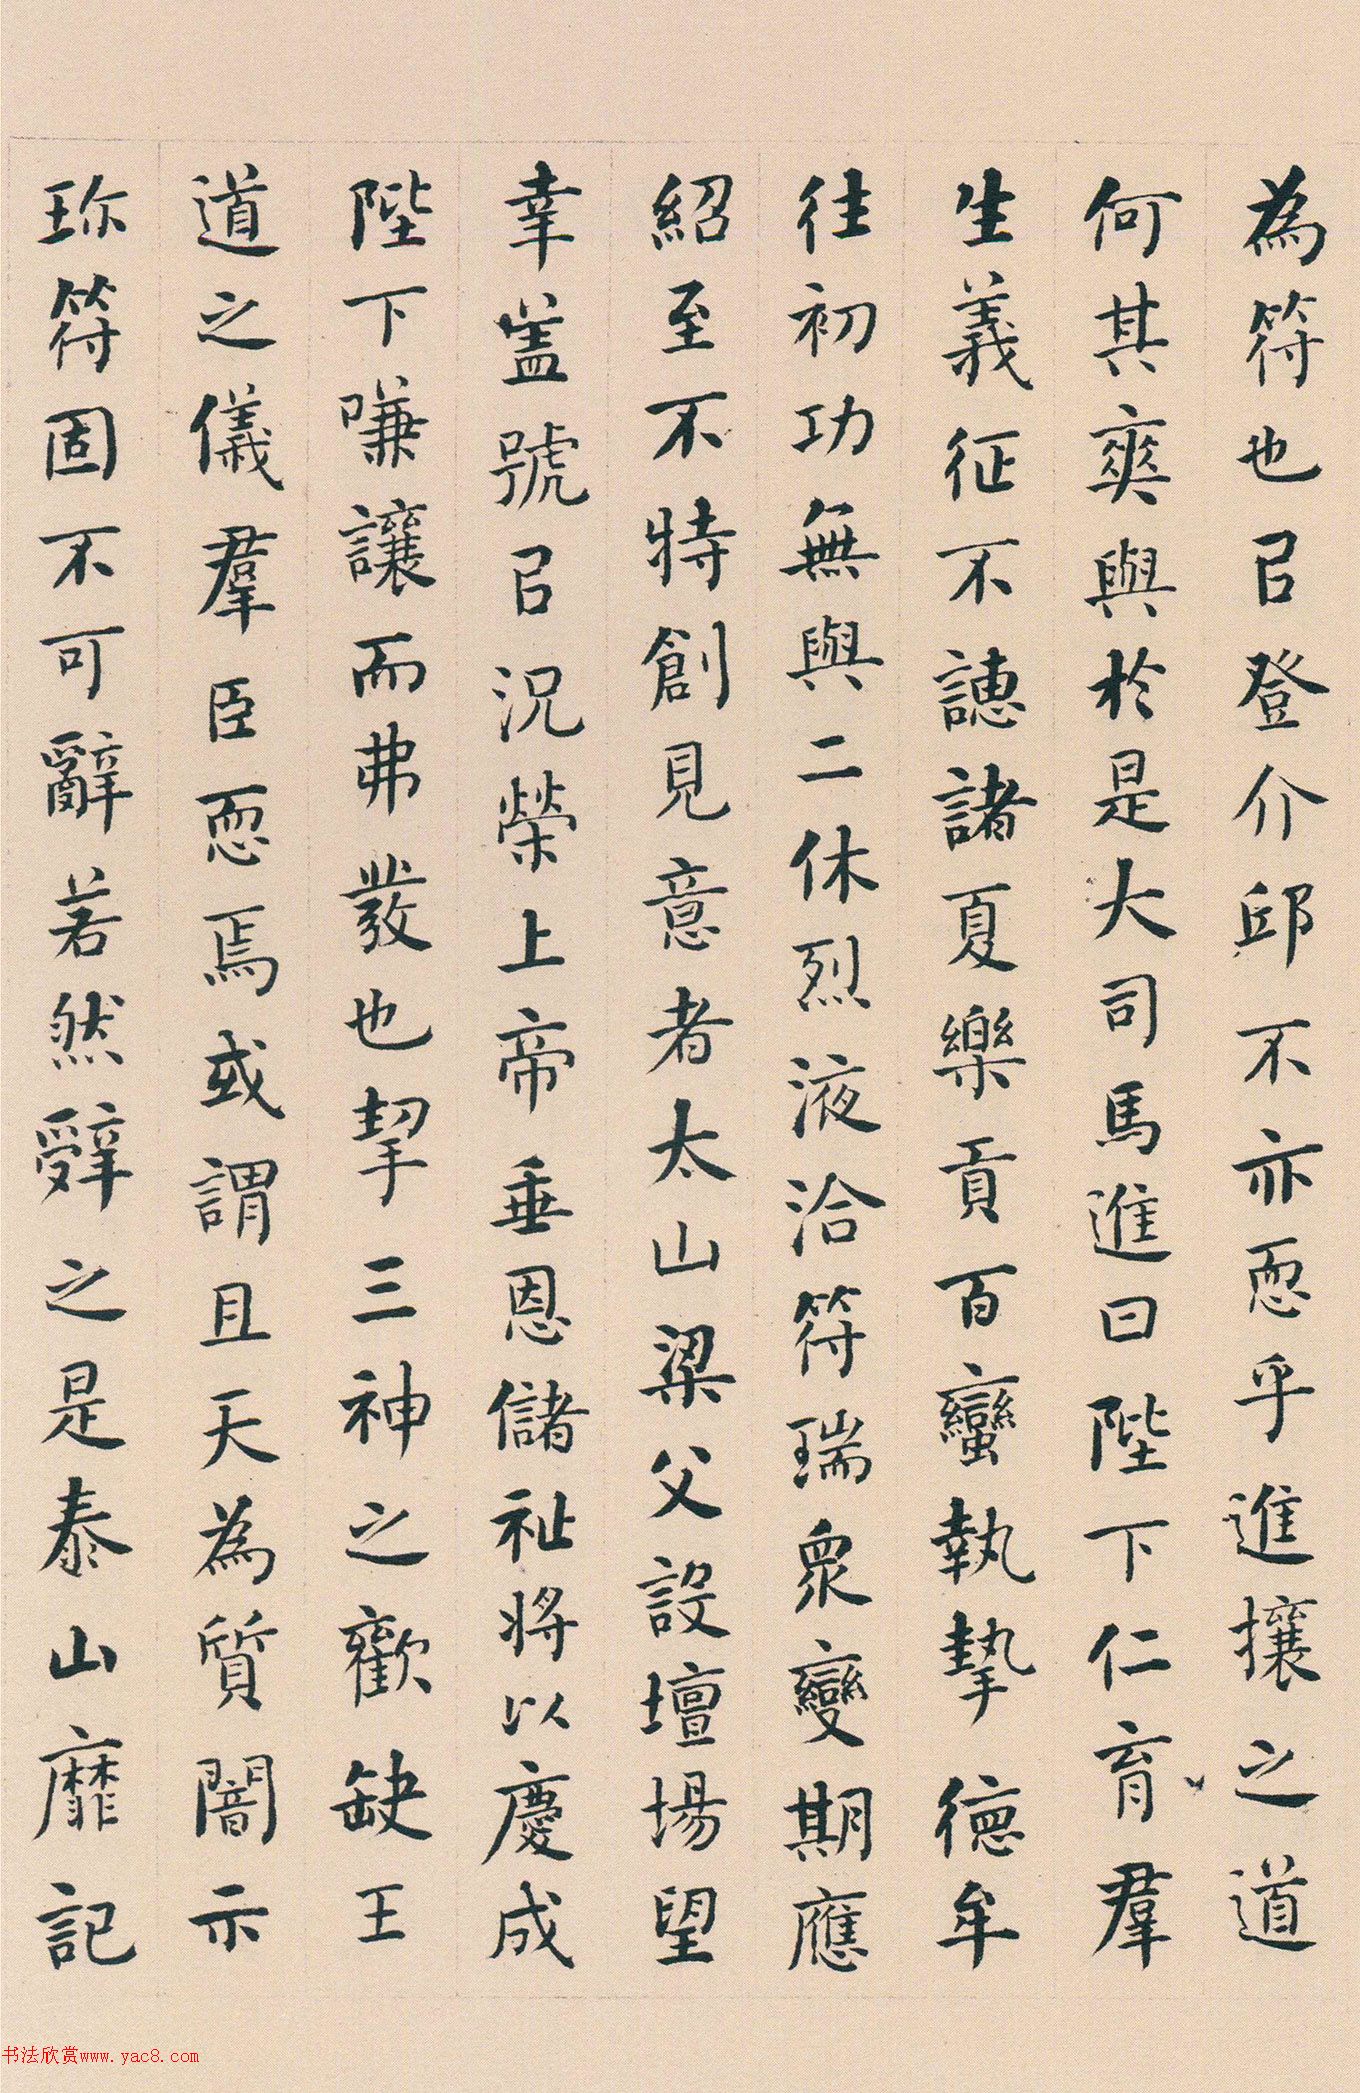 為符也㠯登介邱不亦恧乎進攘之道
何其爽與於是大司馬進曰陛下仁育羣
生義征不譓諸夏樂貢百蠻執摯德牟
往初功無與二休烈液洽符瑞眾變期應
紹至不特創見意者太山梁父設壇場望
幸盖號㠯況榮上帝垂恩儲祉將以慶成
陛下嗛讓而弗發也挈三神之歡缺王
道之儀羣臣恧焉或謂且天為質闇示
珎符固不可辭若然辤之是泰山靡記
书法欣赏www.yac8.com